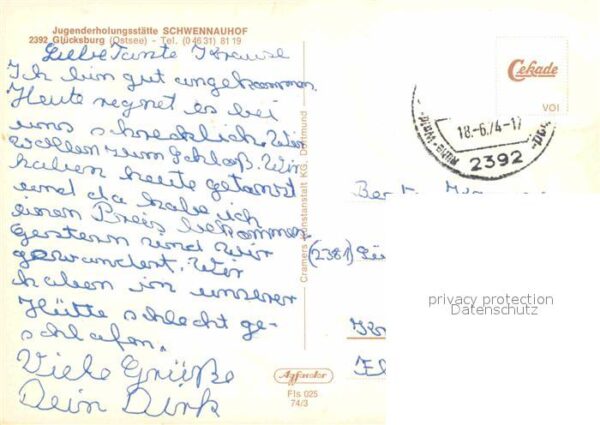 Jugenderholungsstätte SCHWENNAUHOF
2392 Glücksburg (Ostsee) - Tel. (0 46 31) 81 19
Liebe Tante Krause
Ich bin gut angekommen.
Heute regnet es bei
uns schrecklich. Wir
wollen zum Schloß. Wir
haben heute getanzt
und da habe ich
einen Preis bekommen
Gestern sind wir
gewandert. Wir
haben in unserer
Hütte schlecht ge-
schlafen.
Viele Grüße
Dein Dirk
Cramers Kunstanstalt KG, Dortmund
Agfacolor
Fls 025
74/3
Cekade
VOI
18.-6.74-17
2392
(2381)
privacy protection
Datenschutz